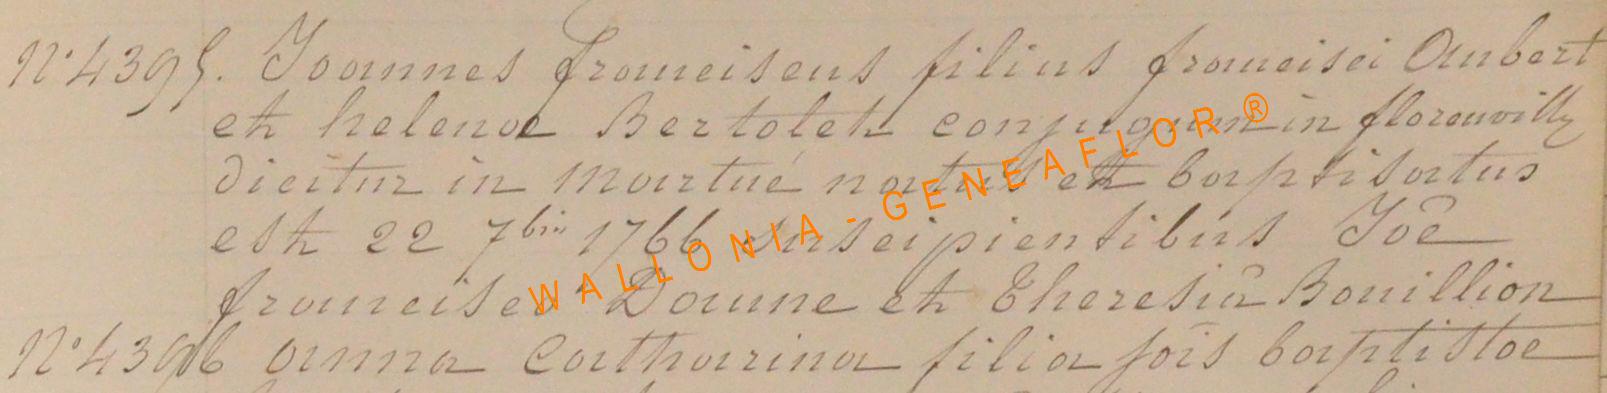 N° 4395. Joannes franciscus filius francisci Aubert
et helenæ Bertolet conjugum in florenvill
dicitur in Martué natus et baptisatus
est 22 7bris 1766 suscipientibus Joê
francisco Daune et Theresiâ Bouillion
N° 4396 anna Catharina filia jois baptistæ
WALLONIA - GENEAFLOR ®